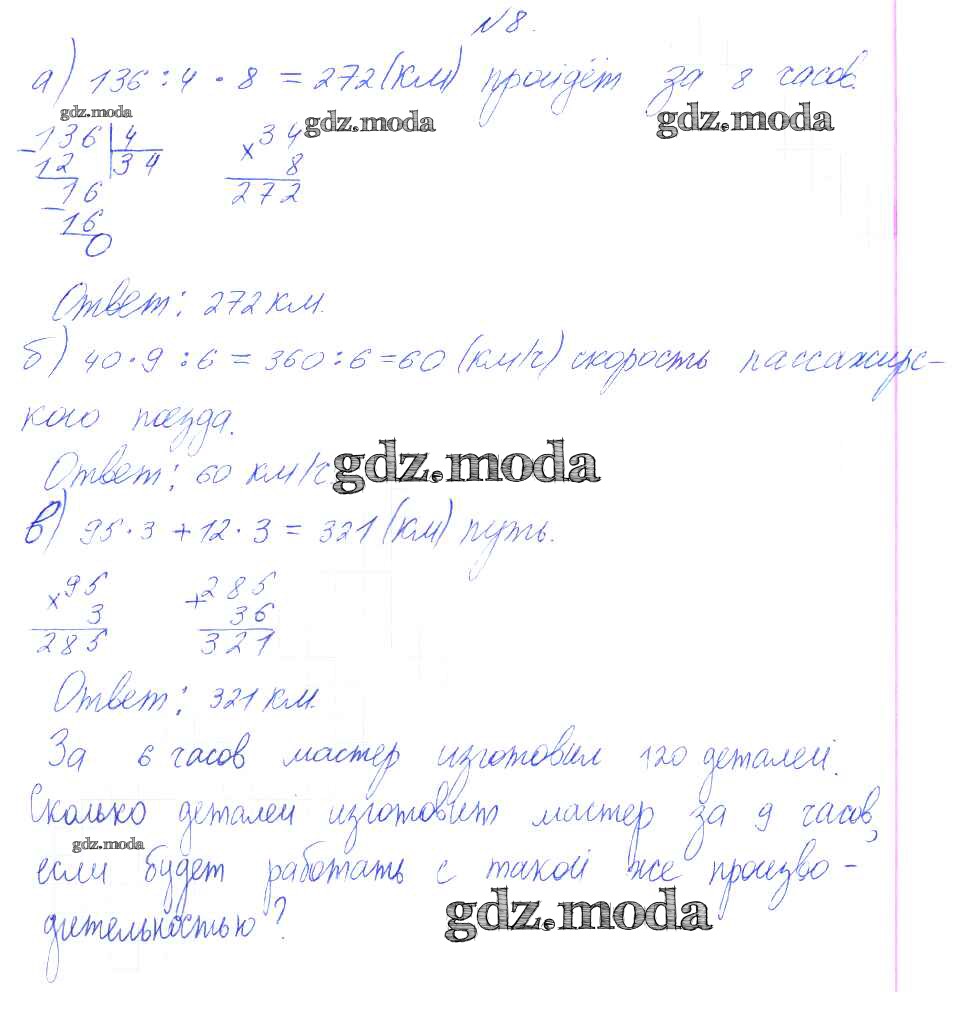 №8.
а) 136 : 4 · 8 = 272 (км) пройдёт за 8 часов.
gdz.moda
gdz.moda gdz.moda
- 136 | 4 × 34
12 34 8
- 16 272
16
0
Ответ: 272 км.
б) 40 · 9 : 6 = 360 : 6 = 60 (км/ч) скорость пассажирс-
кого поезда.
Ответ: 60 км/ч. gdz.moda
в) 95 · 3 + 12 · 3 = 321 (км) путь.
× 95 + 285
3 36
285 321
Ответ: 321 км.
За 6 часов мастер изготовил 120 деталей.
Сколько деталей изготовит мастер за 9 часов,
gdz.moda
если будет работать с такой же произво-
дительностью? gdz.moda